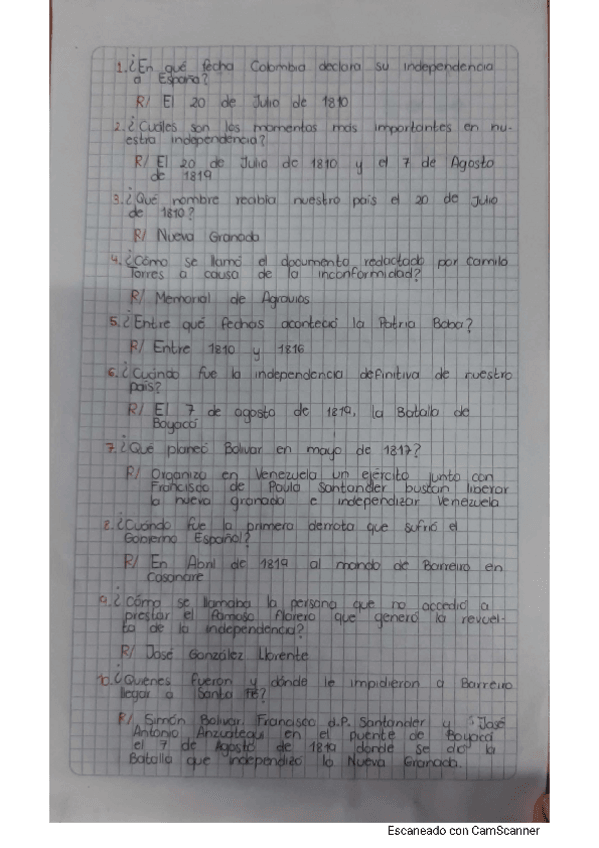 1. ¿En qué fecha Colombia declara su independencia
a España?
R/ El 20 de Julio de 1810
2. ¿Cuáles son los momentos más importantes en nu-
estra independencia?
R/ El 20 de Julio de 1810 y el 7 de Agosto
de 1819
3. ¿Qué nombre recibia nuestro país el 20 de Julio
de 1810?
R/ Nueva Granada
4. ¿Cómo se llamó el documento redactado por Camilo
Torres a causa de la inconformidad?
R/ Memorial de Agravios
5. ¿Entre qué fechas aconteció la Patria Boba?
R/ Entre 1810 y 1816
6. ¿Cuándo fue la independencia definitiva de nuestro
país?
R/ El 7 de agosto de 1819, la Batalla de
Boyacá
7. ¿Qué planeó Bolivar en mayo de 1817?
R/ Organizo en Venezuela un ejército junto con
Francisco de Paula Santander buscan liberar
la nueva granada e independizar Venezuela
8. ¿Cuándo fue la primera derrota que sufrió el
Gobierno Español?
R/ En Abril de 1819 al mando de Barreiro en
Casanare
9. ¿Cómo se llamaba la persona que no accedió a
prestar el famoso florero que generó la revuel-
ta de la independencia?
R/ José González Llorente
10. ¿Quienes fueron y dónde le impidieron a Barreiro
llegar a Santa Fé?
R/ Simón Bolivar, Francisco d.P. Santander y José
Antonio Anzuategui en el puente de Boyacá
el 7 de Agosto de 1819 donde se dio la
Batalla que independizo la Nueva Granada.
Escaneado con CamScanner